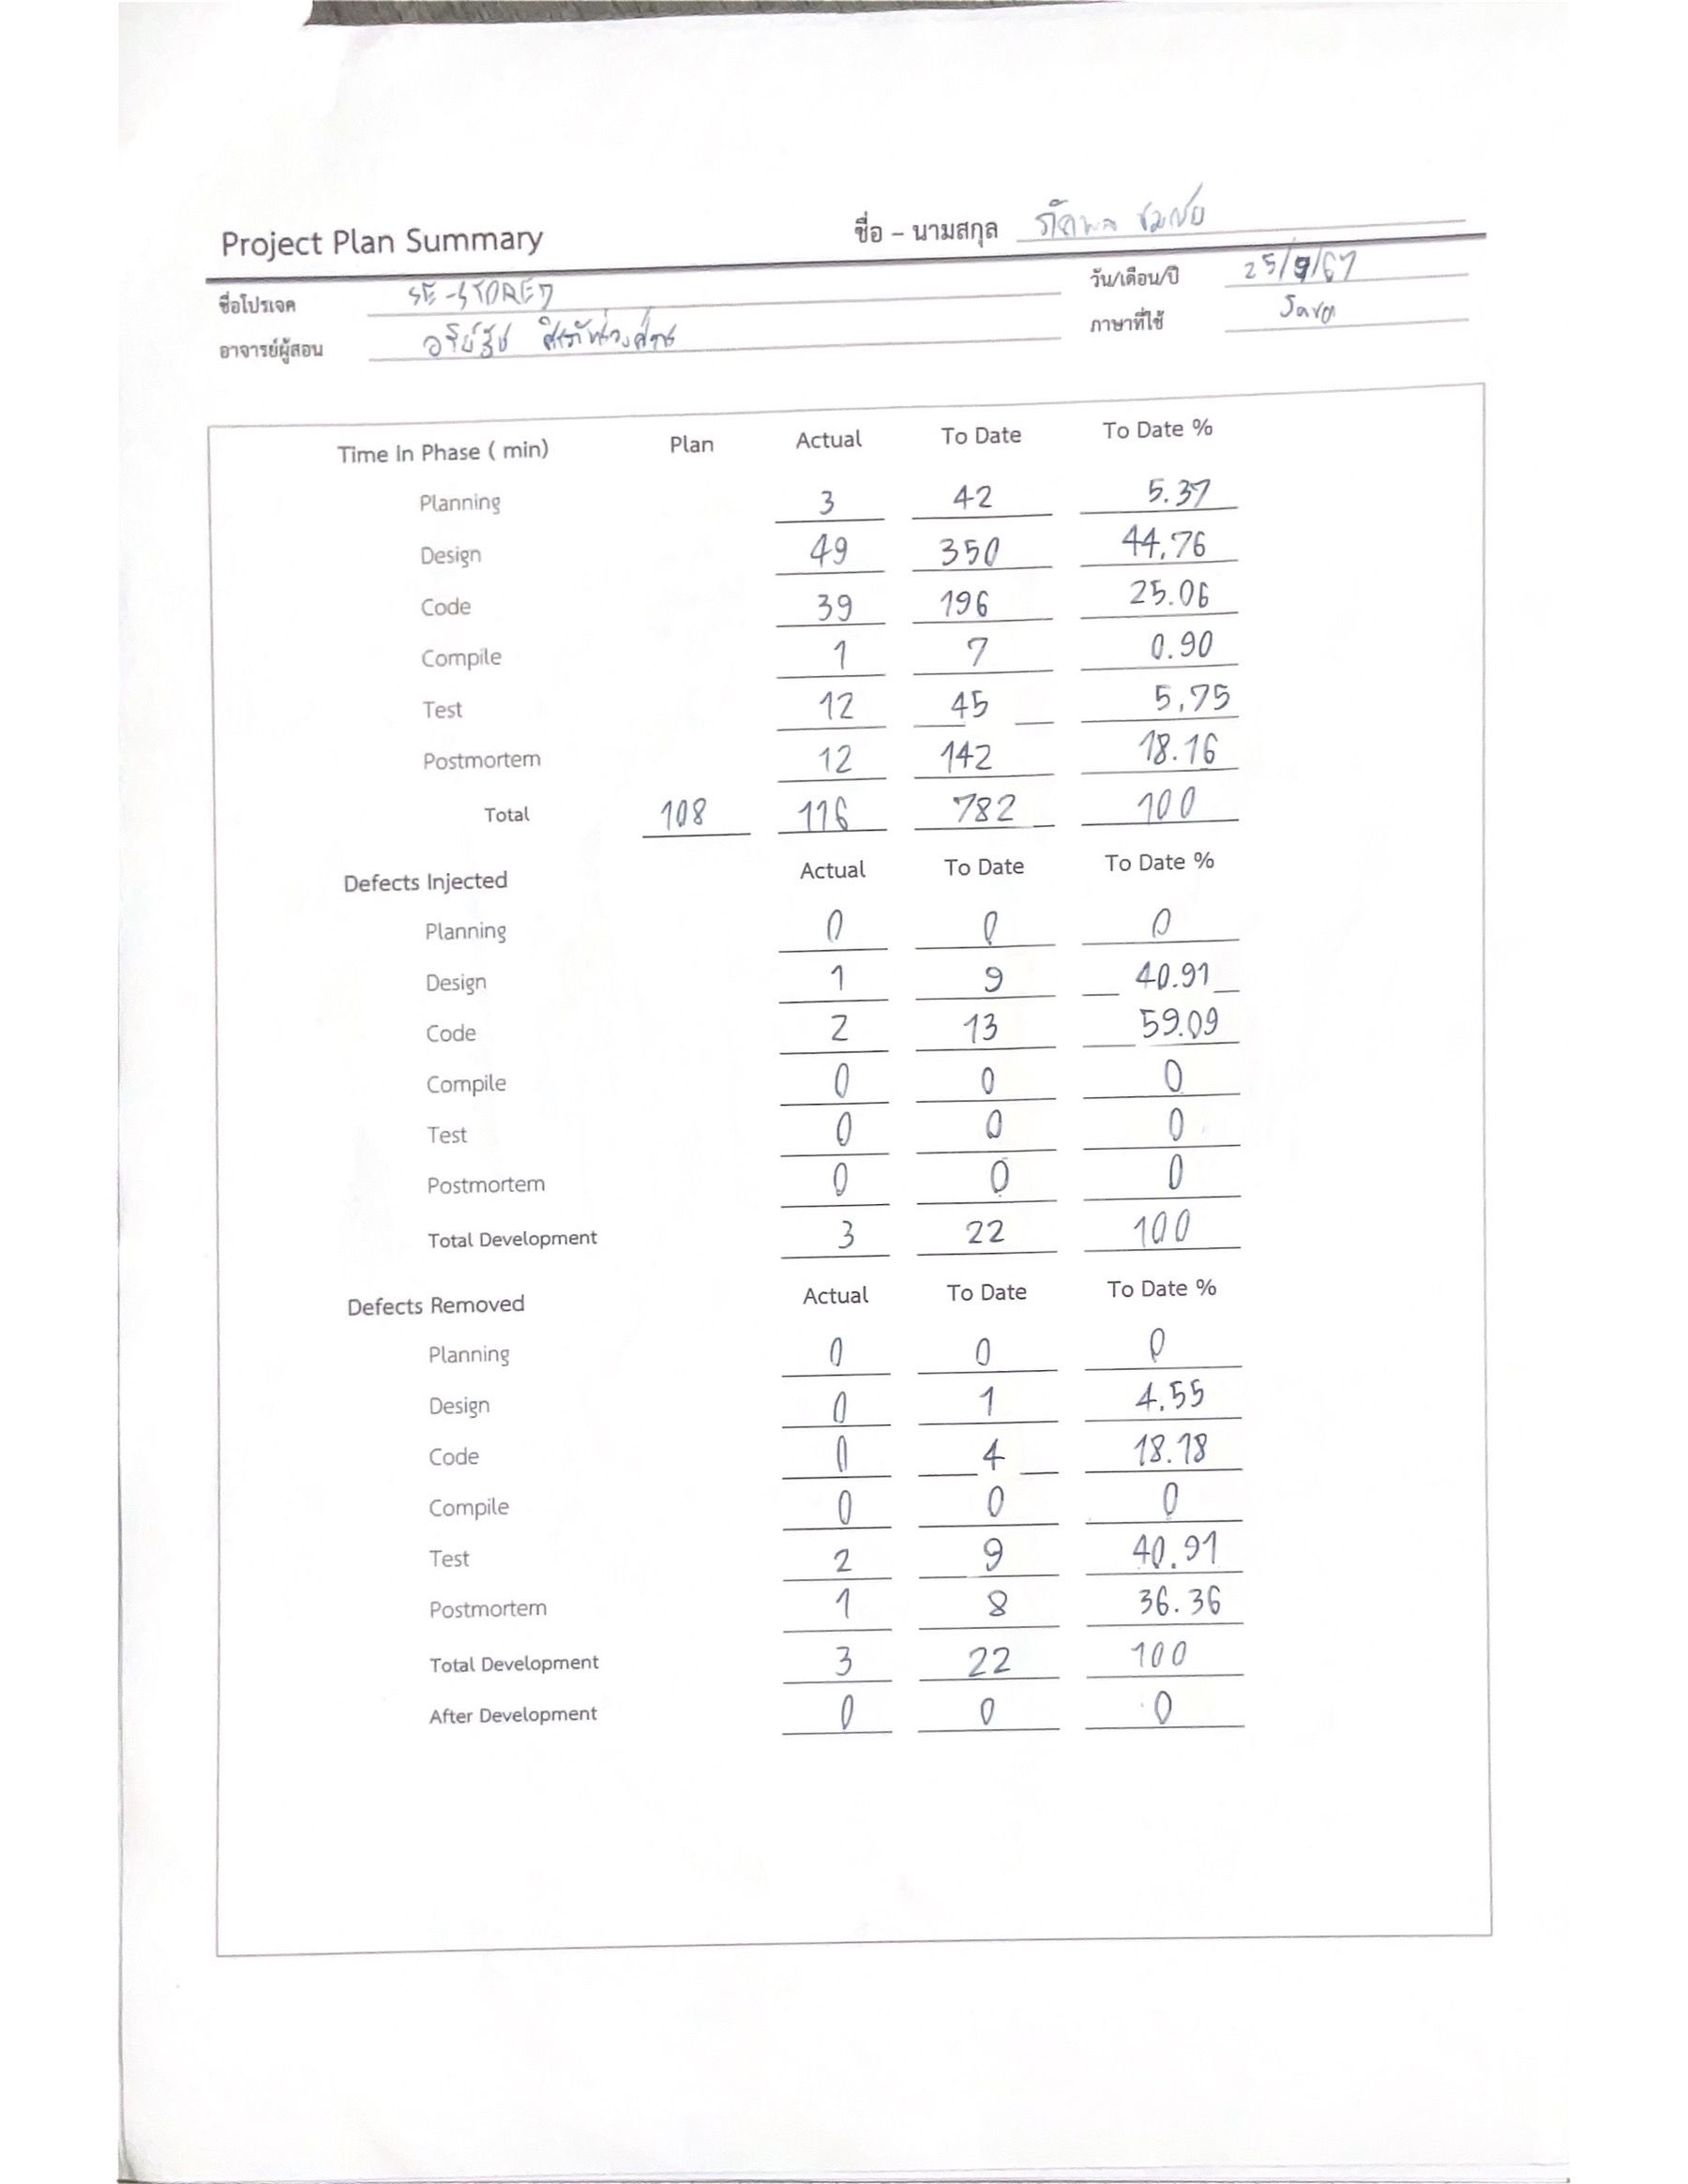 Project Plan Summary ชื่อ – นามสกุล
ชื่อโปรเจค SE-STORED วัน/เดือน/ปี 25/9/67
อาจารย์ผู้สอน ภาษาที่ใช้ Java
Time In Phase ( min) Plan Actual To Date To Date %
Planning 3 42 5.37
Design 49 350 44.76
Code 39 196 25.06
Compile 1 7 0.90
Test 12 45 5.75
Postmortem 12 142 18.16
Total 108 116 782 100
Defects Injected Actual To Date To Date %
Planning 0 0 0
Design 1 9 40.91
Code 2 13 59.09
Compile 0 0 0
Test 0 0 0
Postmortem 0 0 0
Total Development 3 22 100
Defects Removed Actual To Date To Date %
Planning 0 0 0
Design 0 1 4.55
Code 0 4 18.18
Compile 0 0 0
Test 2 9 40.91
Postmortem 1 8 36.36
Total Development 3 22 100
After Development 0 0 0